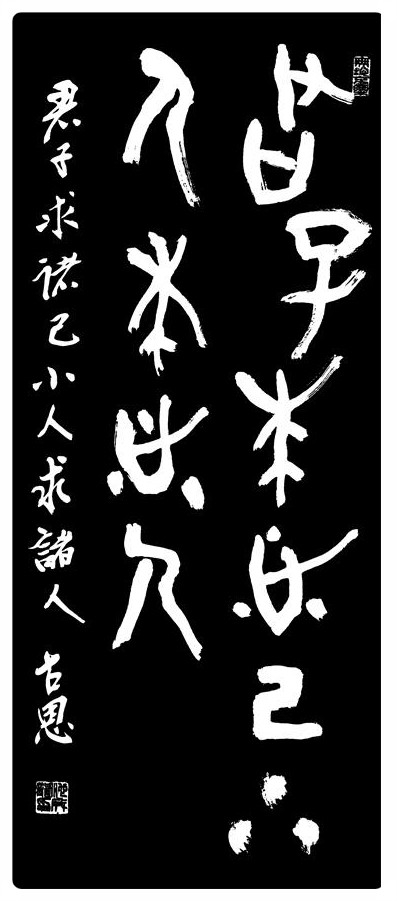 君子求諸己小
人求諸人
君子求诸己小人求諸人 古思